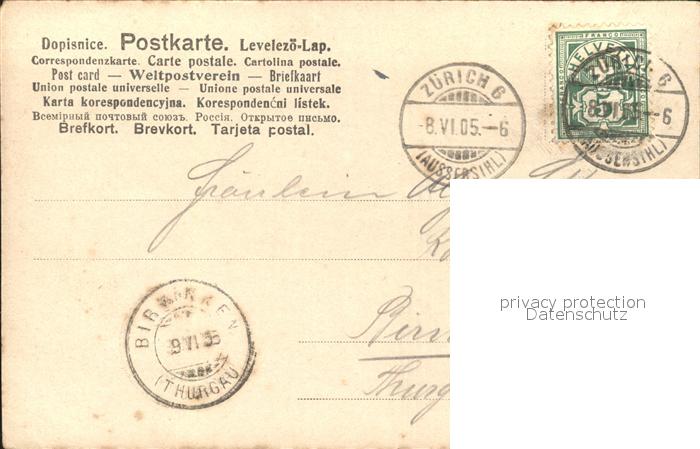 Dopisnice. Postkarte. Levelező-Lap.
Correspondenzkarte. Carte postale. Cartolina postale.
Post card — Weltpostverein — Briefkaart
Union postale universelle — Unione postale universale
Karta korespondencyjna. Korespondenčni listek.
Всемірный почтовый союзъ. Россія. Открытое письмо.
Brefkort. Brevkort. Tarjeta postal.
ZÜRICH 6
-8.VI.05.-6
(AUSSERSIHL)
FRANCO
HELVETIA
5
ZÜRICH 6
-8.VI.05.-6
(AUSSERSIHL)
Fräulein
privacy protection
Datenschutz
BIRWINKEN
9 VI 05
(THURGAU)